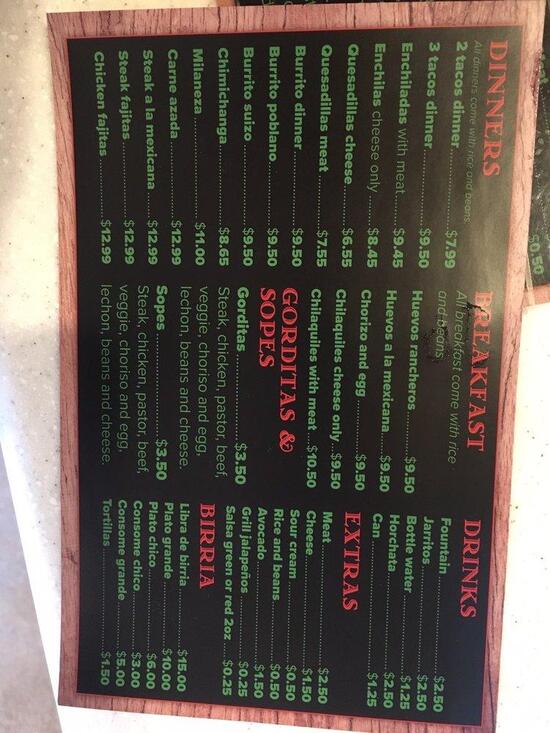 DINNERS
All dinners come with rice and beans.
2 tacos dinner $7.99
3 tacos dinner $9.50
Enchiladas with meat $9.45
Enchilas cheese only $8.45
Quesadillas cheese $6.55
Quesadillas meat $7.55
Burrito dinner $9.50
Burrito poblano $9.50
Burrito suizo $9.50
Chimichanga $8.65
Milaneza $11.00
Carne azada $12.99
Steak a la mexicana $12.99
Steak fajitas $12.99
Chicken fajitas $12.99
BREAKFAST
All breakfast come with rice
and beans.
Huevos rancheros $9.50
Huevos a la mexicana $9.50
Chorizo and egg $9.50
Chilaquiles cheese only $9.50
Chilaquiles with meat $10.50
GORDITAS &
SOPES
Gorditas $3.50
Steak, chicken, pastor, beef,
veggie, choriso and egg,
lechon, beans and cheese.
Sopes $3.50
Steak, chicken, pastor, beef,
veggie, choriso and egg,
lechon, beans and cheese.
DRINKS
Fountain $2.50
Jarritos $2.50
Bottle water $1.25
Horchata $2.50
Can $1.25
EXTRAS
Meat $2.50
Cheese $1.50
Sour cream $0.50
Rice and beans $0.50
Avocado $1.50
Grill jalapeños $0.25
Salsa green or red 2oz $0.25
BIRRIA
Libra de birria $15.00
Plato grande $10.00
Plato chico $6.00
Consome chico $3.00
Consome grande $5.00
Tortillas $1.50
$0.50